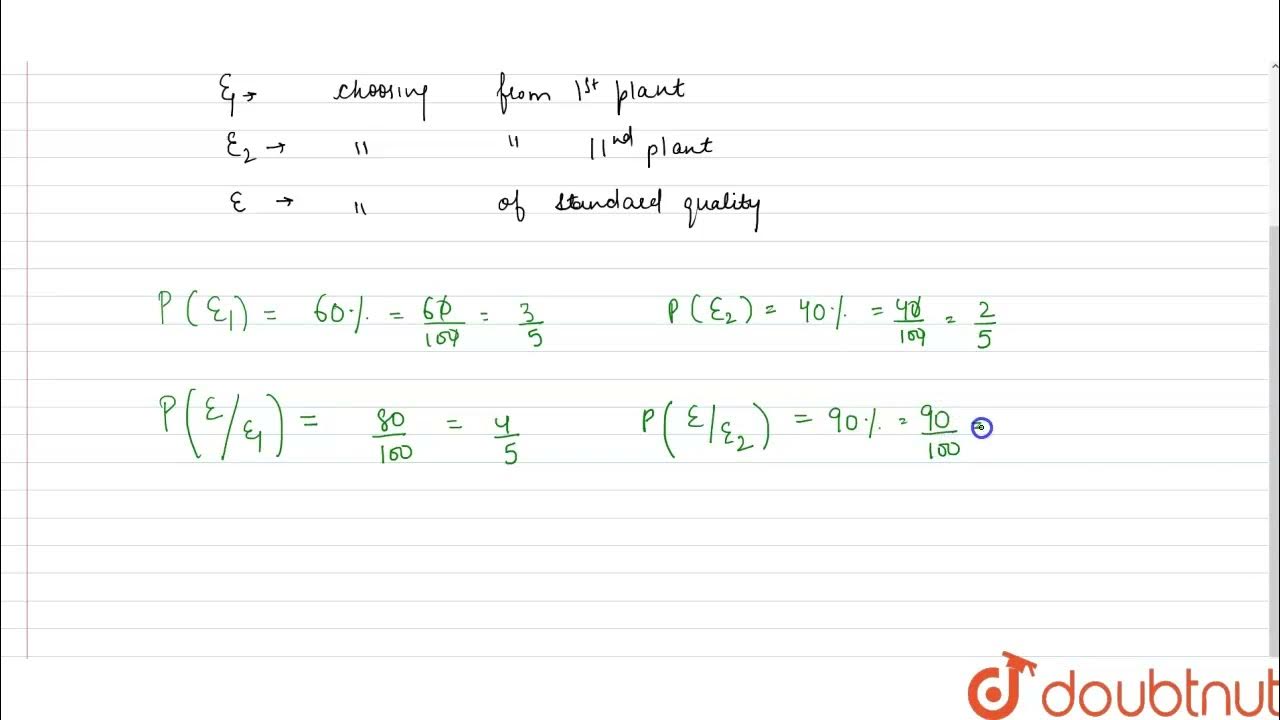 E1 → choosing from 1st plant
E2 → " " IInd plant
E → " of standard quality
P(E1) = 60% = 60/100 = 3/5 P(E2) = 40% = 40/100 = 2/5
P(E/E1) = 80/100 = 4/5 P(E/E2) = 90% = 90/100 =
doubtnut